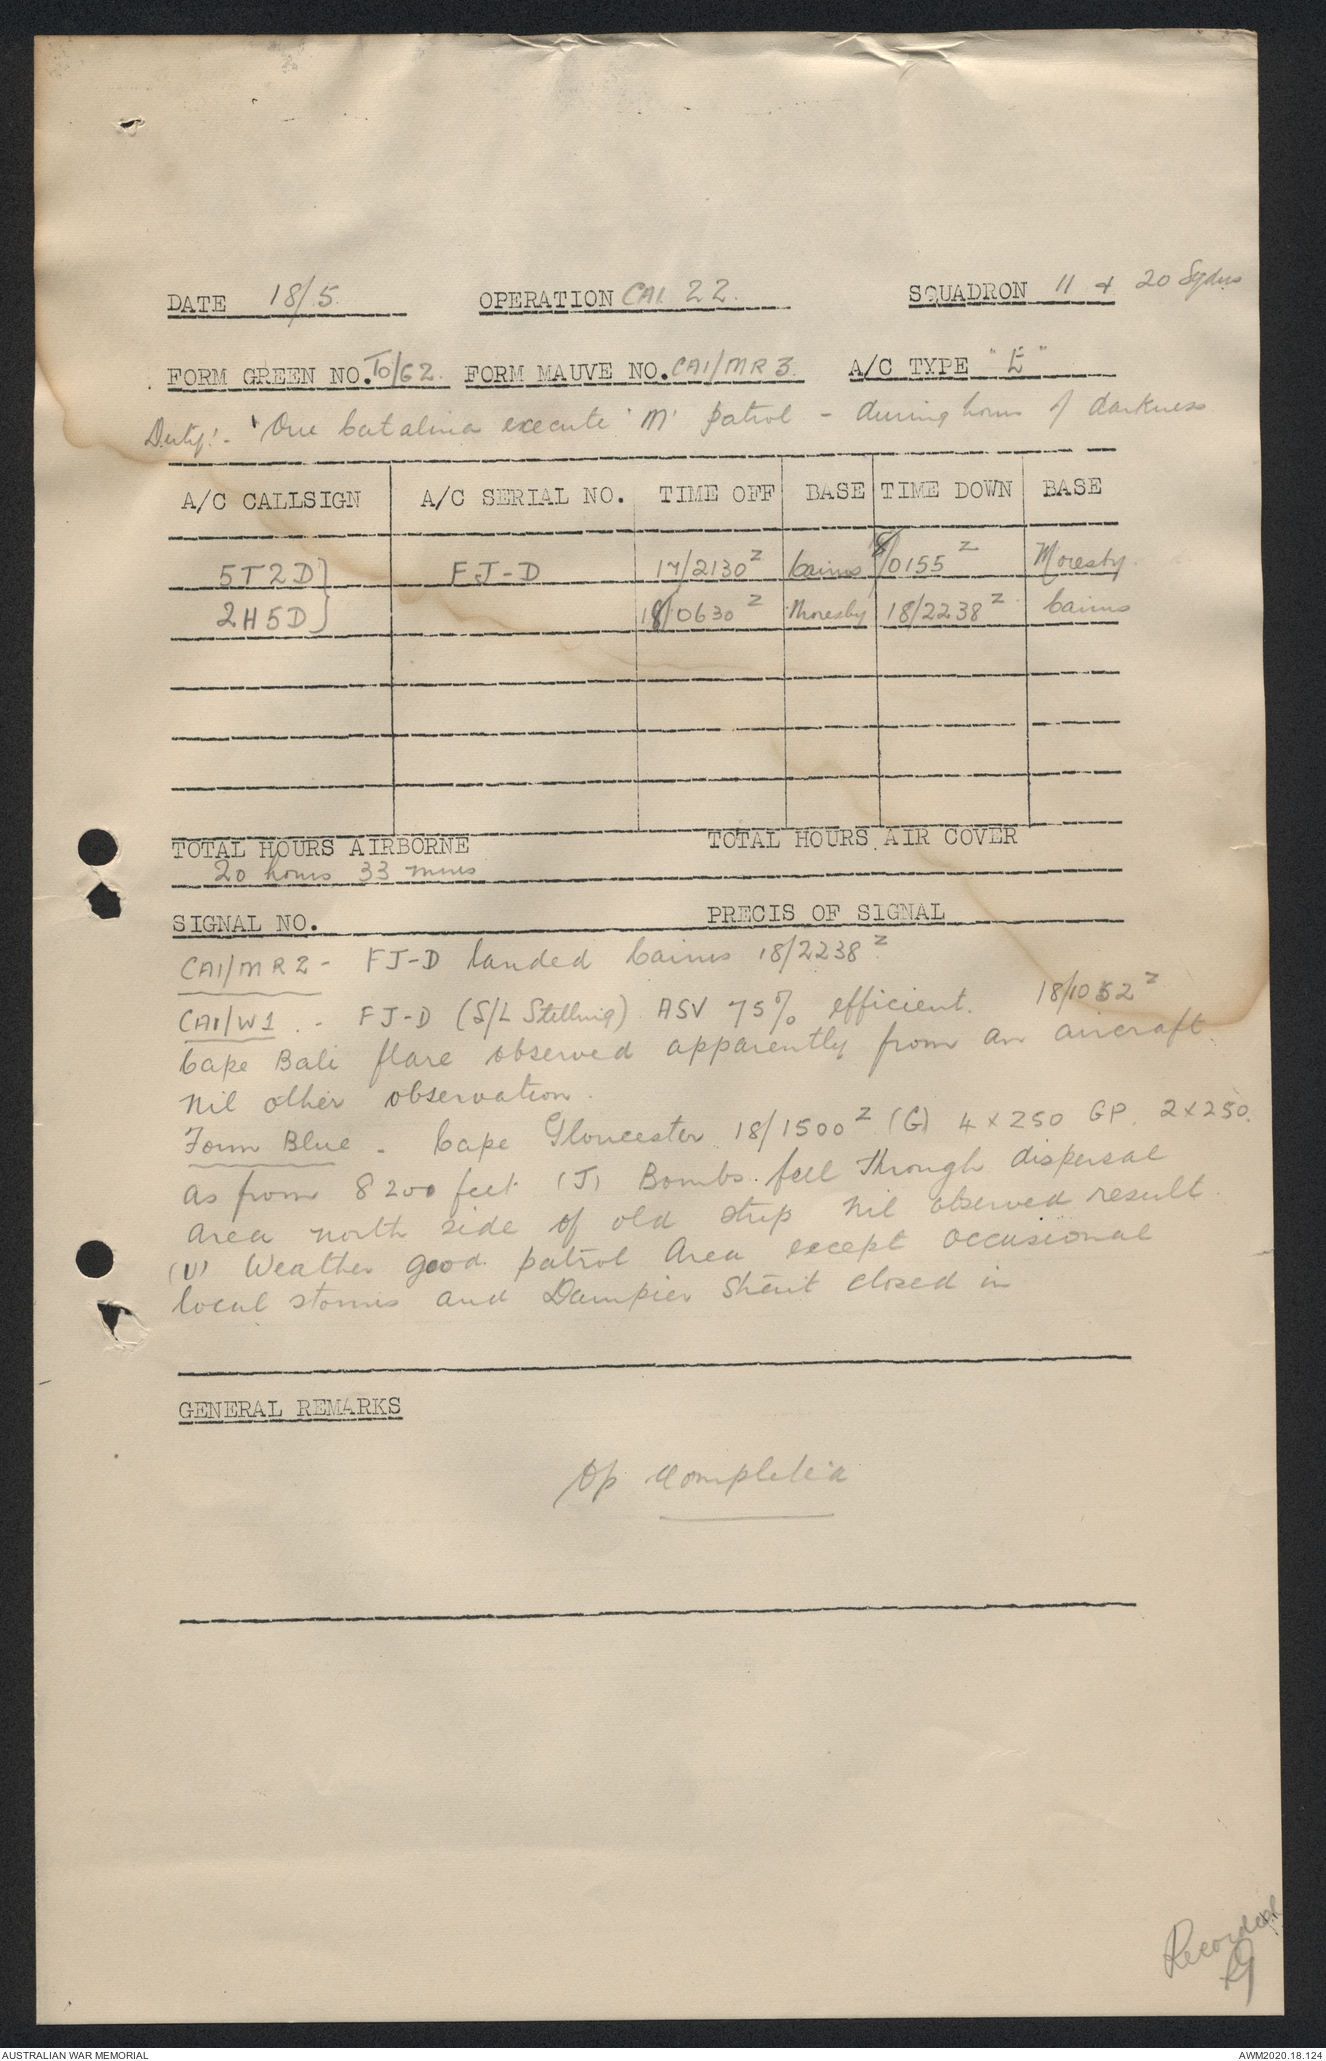 DATE 18/5. OPERATION CAI. 22. SQUADRON 11 & 20 Sqdns
FORM GREEN NO. TO/G2. FORM MAUVE NO. CAI/MR3. A/C TYPE "E"
Duty:- 'One Catalina execute 'M' patrol - during hours of darkness
A/C CALLSIGN A/C SERIAL NO. TIME OFF BASE TIME DOWN BASE
5T2D} FJ-D 17/2130 Z Cairns 18/0155 Z Moresby.
2H5D} 18/0630 Z Moresby 18/2238 Z Cairns
TOTAL HOURS AIRBORNE TOTAL HOURS AIR COVER
20 hours 33 mins
SIGNAL NO. PRECIS OF SIGNAL
CAI/MR2 - FJ-D landed Cairns 18/2238 Z
CAI/W1. - FJ-D (S/L Stilling) ASV 75% efficient. 18/1052 Z
Cape Bali flare observed apparently from an aircraft.
Nil other observation.
Form Blue - Cape Gloucester 18/1500 Z (G) 4 x 250 GP. 2 x 250.
as from 8200 feet (J) Bombs fell through dispersal
area north side of old strip nil observed result.
(U) Weather good patrol area except occasional
local storms and Dampier Strait closed in
GENERAL REMARKS
Op completed
Recorded
AUSTRALIAN WAR MEMORIAL AWM2020.18.124